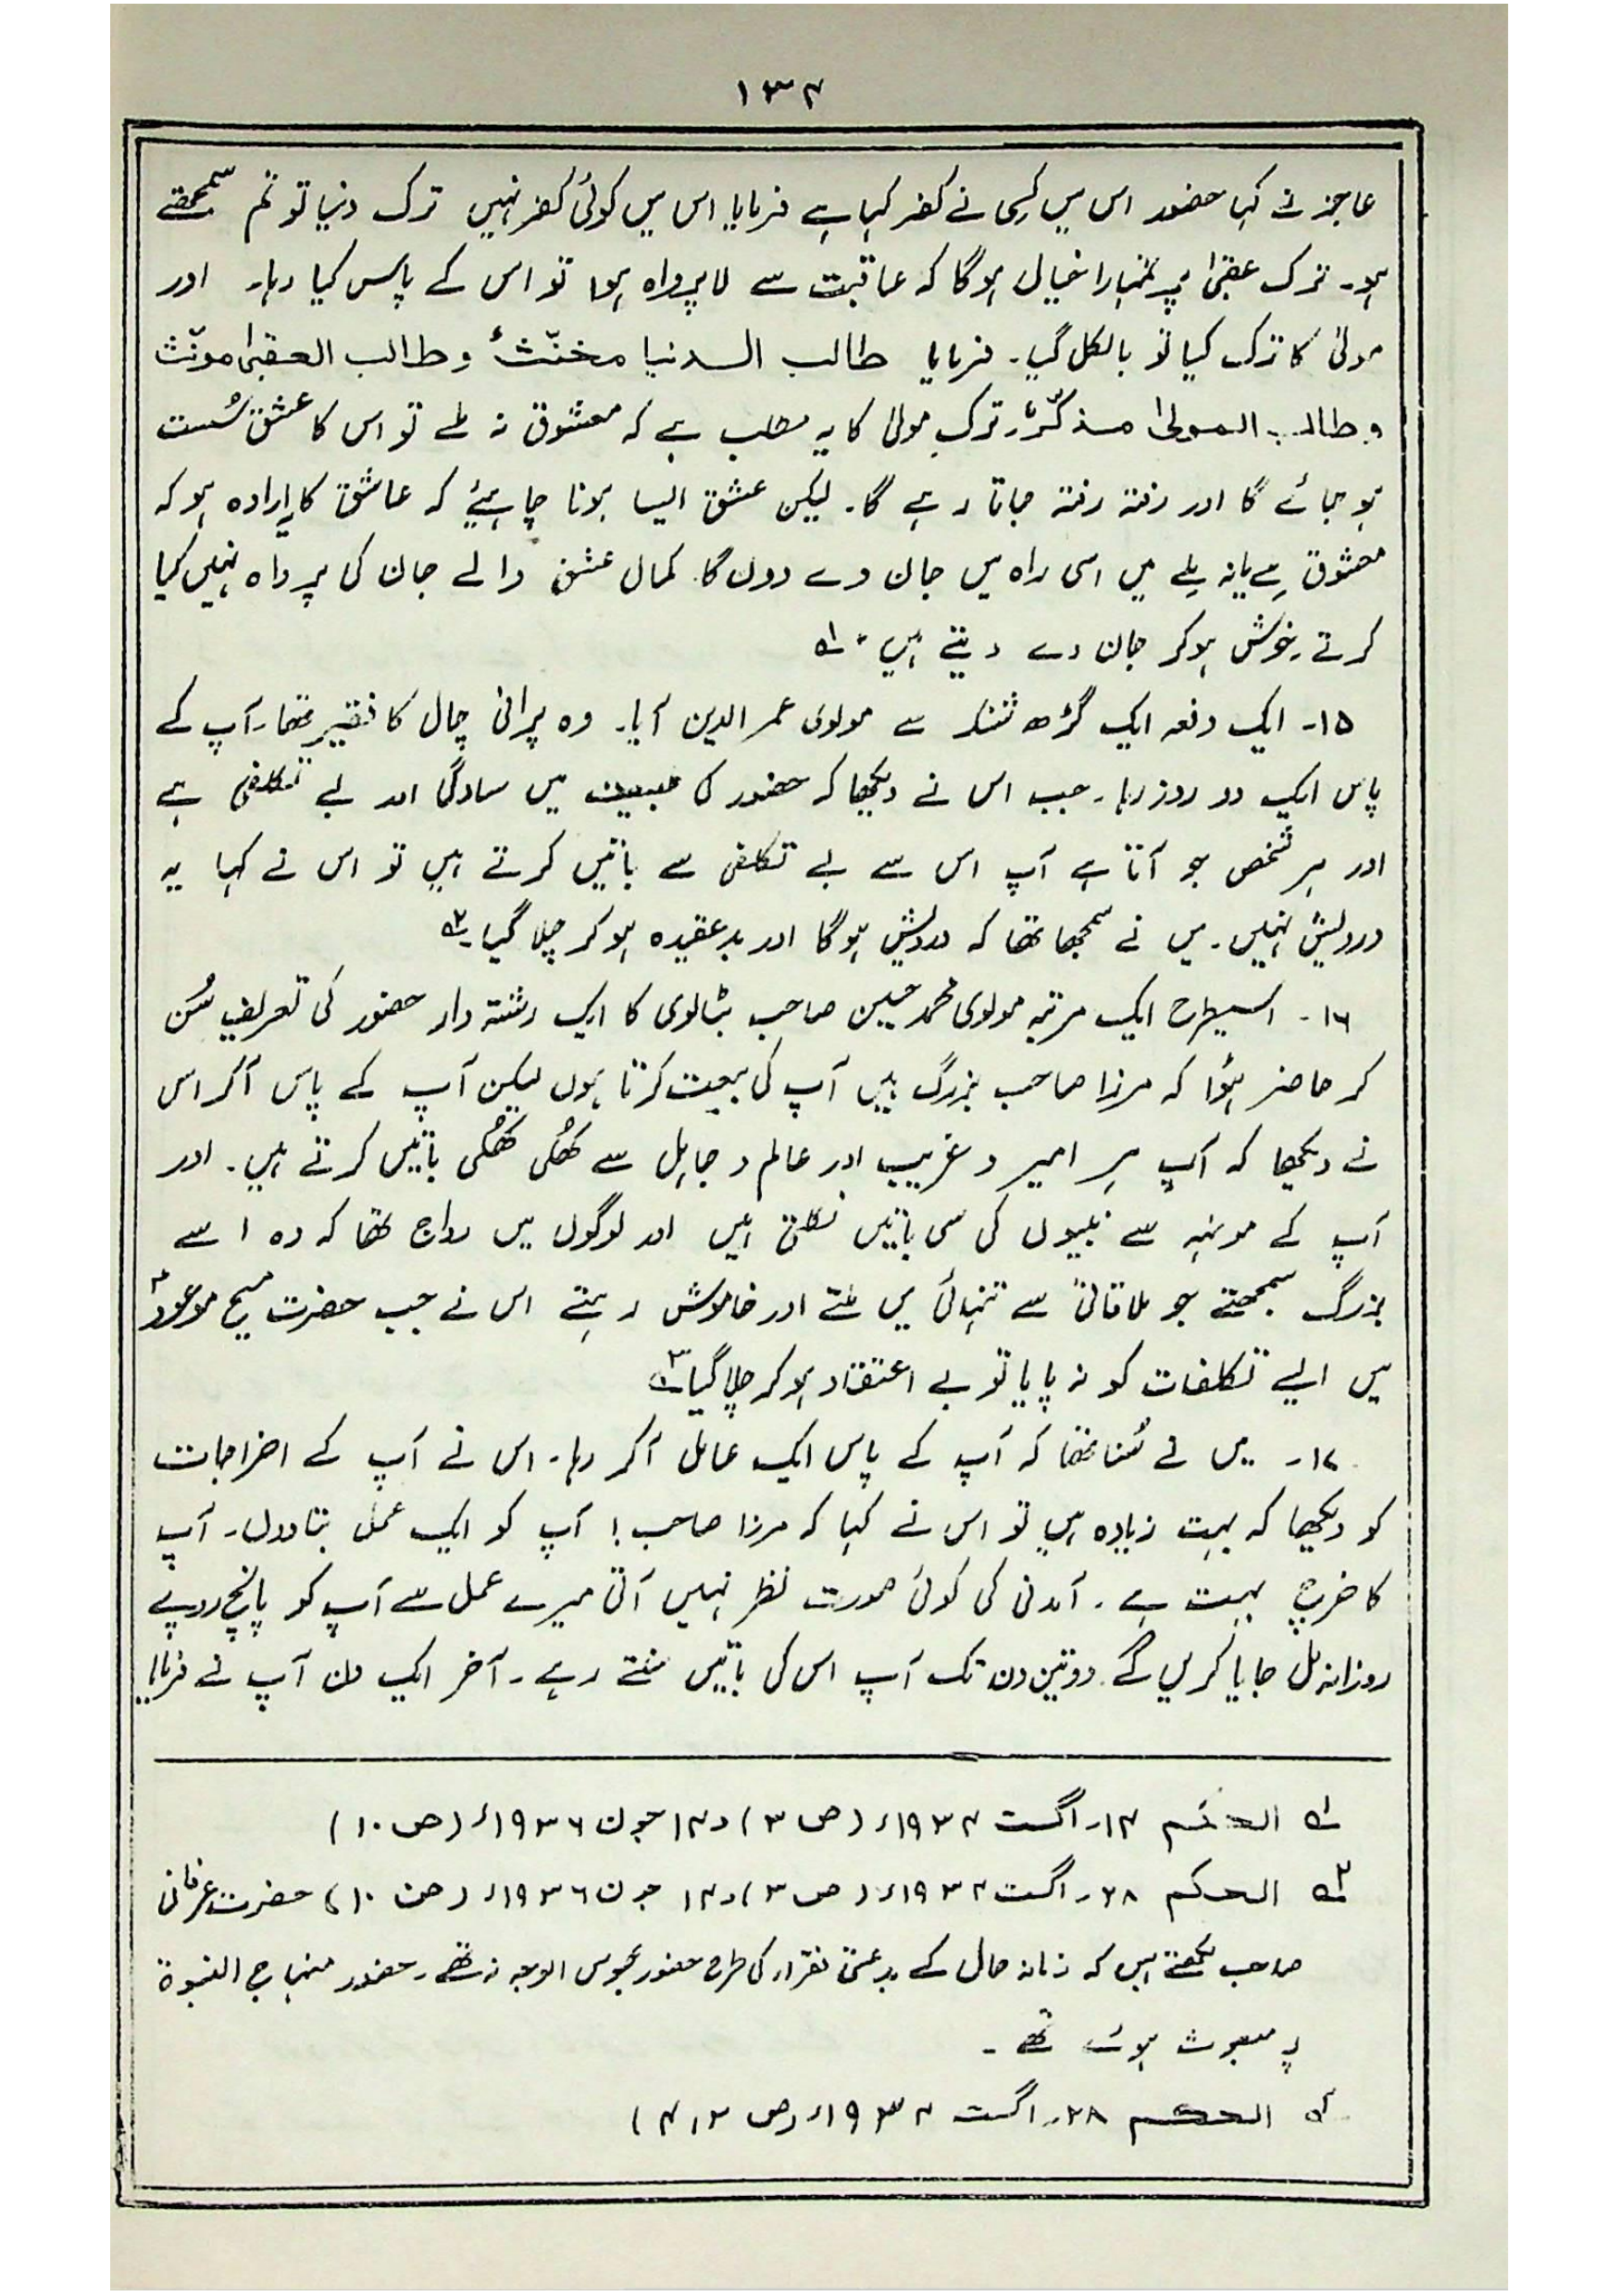 ۱۳۴
عاجز نے کہا حضور اس میں کسی نے کفر کہا ہے فرمایا اس میں کوئی کفر نہیں ترک دنیا تو تم سمجھتے
ہو۔ ترک عقبیٰ پر تمہارا خیال ہوگا کہ عاقبت سے لاپرواہ ہوا تو اس کے پاس کیا رہا۔ اور
مولیٰ کا ترک کیا تو بالکل گیا۔ فرمایا طالب الدنیا مخنّثٌ وطالب العقبیٰ مونّث
وطالب المولیٰ مذکّرٌ۔ ترکِ مولیٰ کا یہ مطلب ہے کہ معشوق نہ ملے تو اس کا عشق سُست
ہو جائے گا اور رفتہ رفتہ جاتا رہے گا۔ لیکن عشق ایسا ہونا چاہیئے کہ عاشق کا یہ ارادہ ہو کہ
معشوق ملے یا نہ ملے میں اسی راہ میں جان دے دوں گا۔ کمال عشق والے جان کی پرواہ نہیں کیا
کرتے۔ خوش ہوکر جان دے دیتے ہیں۔ ۱؎
۱۵۔ ایک دفعہ ایک گڑھ شنکر سے مولوی عمر الدین آیا۔ وہ پرانی چال کا فقیر تھا۔ آپ کے
پاس ایک دو روز رہا۔ جب اس نے دیکھا کہ حضور کی طبیعت میں سادگی اور بے تکلفی ہے
اور ہر شخص جو آتا ہے آپ اس سے بے تکلفی سے باتیں کرتے ہیں تو اس نے کہا یہ
درویش نہیں۔ میں نے سمجھا تھا کہ درویش ہوگا اور بدعقیدہ ہوکر چلا گیا۔ ۲؎
۱۶۔ اسیطرح ایک مرتبہ مولوی محمد حسین صاحب بٹالوی کا ایک رشتہ دار حضور کی تعریف سُن
کر حاضر ہؤا کہ مرزا صاحب بزرگ ہیں آپ کی بیعت کرتا ہوں لیکن آپ کے پاس آکر اس
نے دیکھا کہ آپ ہر امیر و غریب اور عالم و جاہل سے کھُلی کھُلی باتیں کرتے ہیں۔ اور
آپ کے مونہہ سے نبیوں کی سی باتیں نکلتی ہیں اور لوگوں میں رواج تھا کہ وہ اسے
بزرگ سمجھتے جو ملاقاتی سے تنہائی میں ملتے اور خاموش رہتے اس نے جب حضرت مسیح موعودؑ
میں ایسے تکلفات کو نہ پایا تو بے اعتقاد ہوکر چلا گیا۔ ۳؎
۱۷۔ میں نے سُنا تھا کہ آپ کے پاس ایک عامل آکر رہا۔ اس نے آپ کے اخراجات
کو دیکھا کہ بہت زیادہ ہیں تو اس نے کہا کہ مرزا صاحب! آپ کو ایک عمل بتا دوں۔ آپ
کا خرچ بہت ہے۔ آمدنی کی کوئی صورت نظر نہیں آتی میرے عمل سے آپ کو پانچ روپے
روزانہ مل جایا کریں گے۔ دو تین دن تک آپ اس کی باتیں سنتے رہے۔ آخر ایک دن آپ نے فرمایا
۱؎ الحکم ۱۴۔ اگست ۱۹۳۴ء (ص ۳) و ۱۴ جون ۱۹۳۶ء (ص ۱۰)
۲؎ الحکم ۲۸۔ اگست ۱۹۳۴ء (ص ۳) و ۱۴ جون ۱۹۳۶ء (ص ۱۰) حضرت عرفانی
صاحب لکھتے ہیں کہ زمانہ حال کے بدعتی فقراء کی طرح حضور عبوس الوجہ نہ تھے۔ حضور منہاج النبوة
پر مبعوث ہوئے تھے۔
الحکم ۲۸۔ اگست ۱۹۳۴ء (ص ۳، ۴)